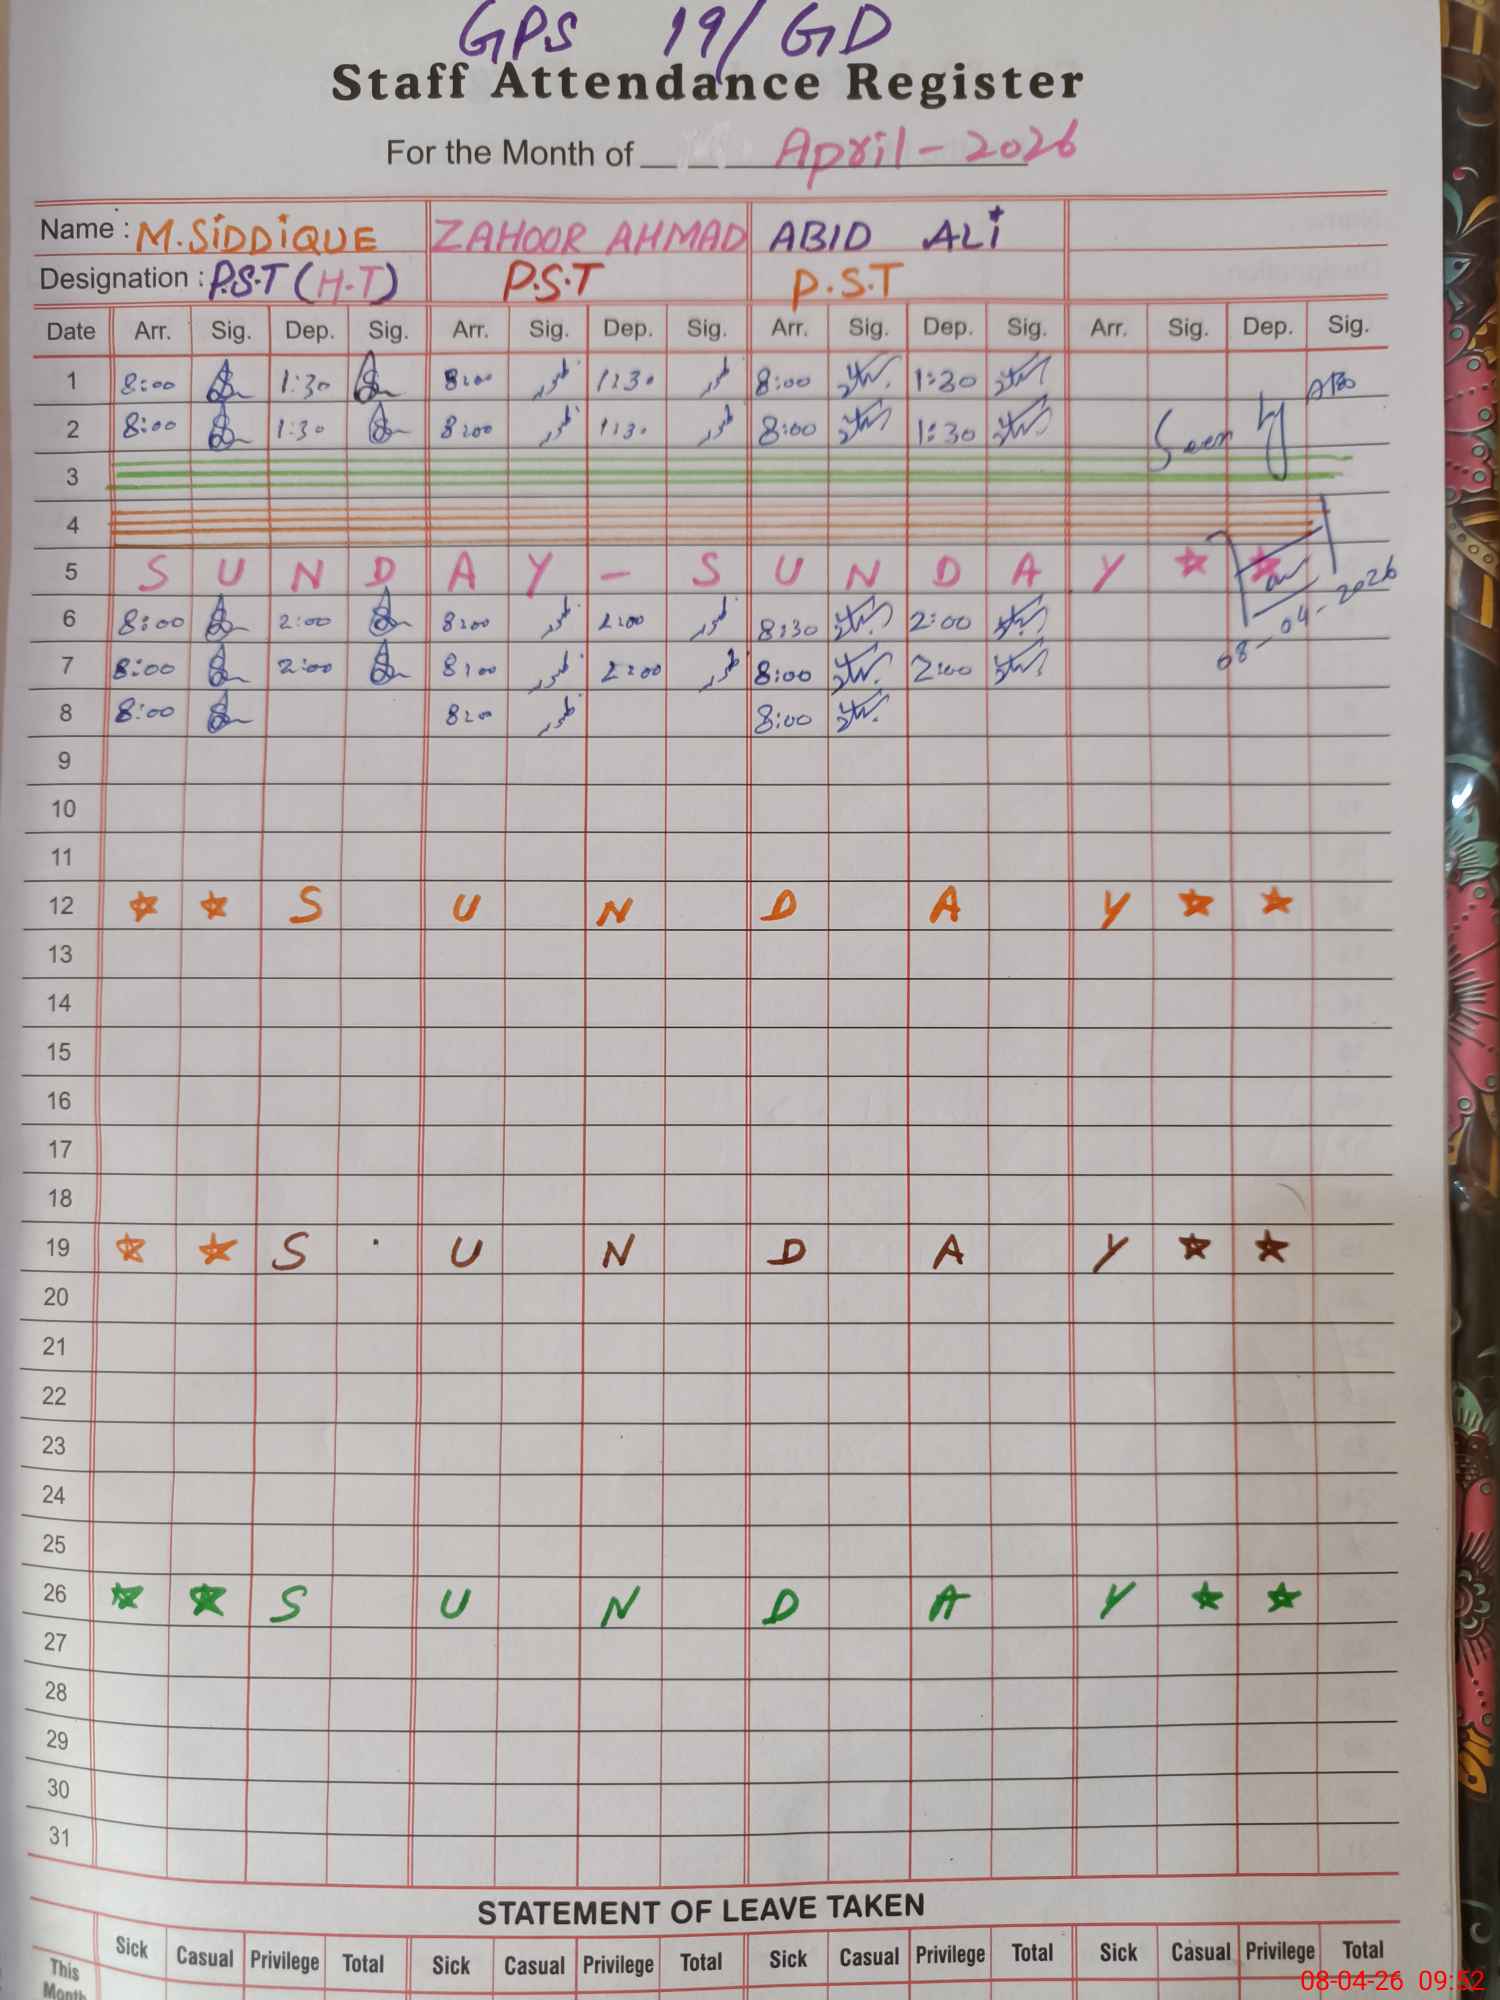 GPS 19/GD
Staff Attendance Register
For the Month of April - 2026
Name : M.SiDDiQUE ZAHOOR AHMAD ABID ALi
Designation : P.S.T (H-T) P.S.T P.S.T
Date Arr. Sig. Dep. Sig. Arr. Sig. Dep. Sig. Arr. Sig. Dep. Sig. Arr. Sig. Dep. Sig.
1 8:00 1:30 8:00 ظہور 1:30 ظہور 8:00 1:30
2 8:00 1:30 8:00 ظہور 1:30 ظہور 8:00 1:30 Seen by
3
4
5 S U N D A Y - S U N D A Y
6 8:00 2:00 8:00 ظہور 2:00 ظہور 8:30 2:00
08-04-2026
7 8:00 2:00 8:00 ظہور 2:00 ظہور 8:00 2:00
8 8:00 8:00 ظہور 8:00
9
10
11
12 S U N D A Y
13
14
15
16
17
18
19 S U N D A Y
20
21
22
23
24
25
26 S U N D A Y
27
28
29
30
31
STATEMENT OF LEAVE TAKEN
Sick Casual Privilege Total Sick Casual Privilege Total Sick Casual Privilege Total Sick Casual Privilege Total
This
Month
08-04-26 09:52